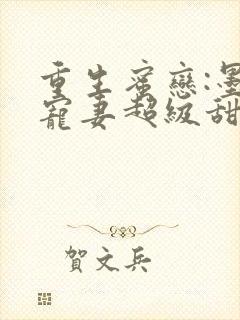 重生蜜戀:墨
寵妻超級甜
賀文兵